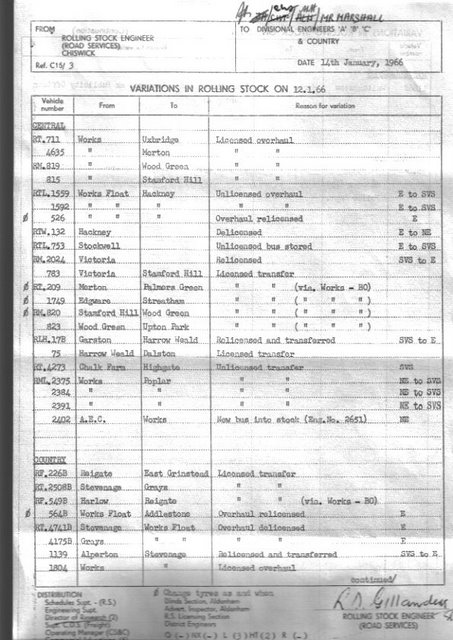 MR MARSHALL
FROM
ROLLING STOCK ENGINEER
(ROAD SERVICES)
CHISWICK
Ref. C15/ 3
TO DIVISIONAL ENGINEERS 'A' 'B' 'C'
& COUNTRY
DATE 14th January, 1966
VARIATIONS IN ROLLING STOCK ON 12.1.66
Vehicle number From To Reason for variation
CENTRAL
RT.711 Works Uxbridge Licensed overhaul
4635 " Merton " "
RM.819 " Wood Green " "
815 " Stamford Hill " "
RTL.1559 Works Float Hackney Unlicensed overhaul E to SVS
1592 " " " " " E to SVS
Ø 526 " " Overhaul relicensed E
RTW.132 Hackney Delicensed E to NE
RTL.753 Stockwell Unlicensed bus stored E to SVS
RM.2024 Victoria Relicensed SVS to E
783 Victoria Stamford Hill Licensed transfer
Ø RT.209 Merton Palmers Green " " (via. Works - BO)
Ø 1749 Edgware Streatham " " ( " " " )
Ø RM.820 Stamford Hill Wood Green " " ( " " " )
823 Wood Green Upton Park " " ( " " " )
RLH.17B Garston Harrow Weald Relicensed and transferred SVS to E
75 Harrow Weald Dalston Licensed transfer
RT.4273 Chalk Farm Highgate Unlicensed transfer SVS
RML.2375 Works Poplar " " NE to SVS
2384 " " " " NE to SVS
2391 " " " " NE to SVS
2402 A.E.C. Works New bus into stock (Eng.No. 2651) NE
COUNTRY
RF.226B Reigate East Grinstead Licensed transfer
RT.2508B Stevenage Grays " "
RF.549B Harlow Reigate " " (via. Works - BO)
Ø 564B Works Float Addlestone Overhaul relicensed E
RT.4741B Stevenage Works Float Overhaul delicensed E
4175B Grays " " " " E
1139 Alperton Stevenage Relicensed and transferred SVS to E
1804 Works " Licensed overhaul
continued/
DISTRIBUTION
Schedules Supt. - (R.S.)
Engineering Supt.
Director of Research (2)
Supt. C.D.S. (Props)
Operating Manager (CS&C)
Ø Change tyres as and when
Blinds Section, Aldenham
Advert. Inspector, Aldenham
R.S. Licensing Section
District Engineers
ROLLING STOCK ENGINEER
(ROAD SERVICES)